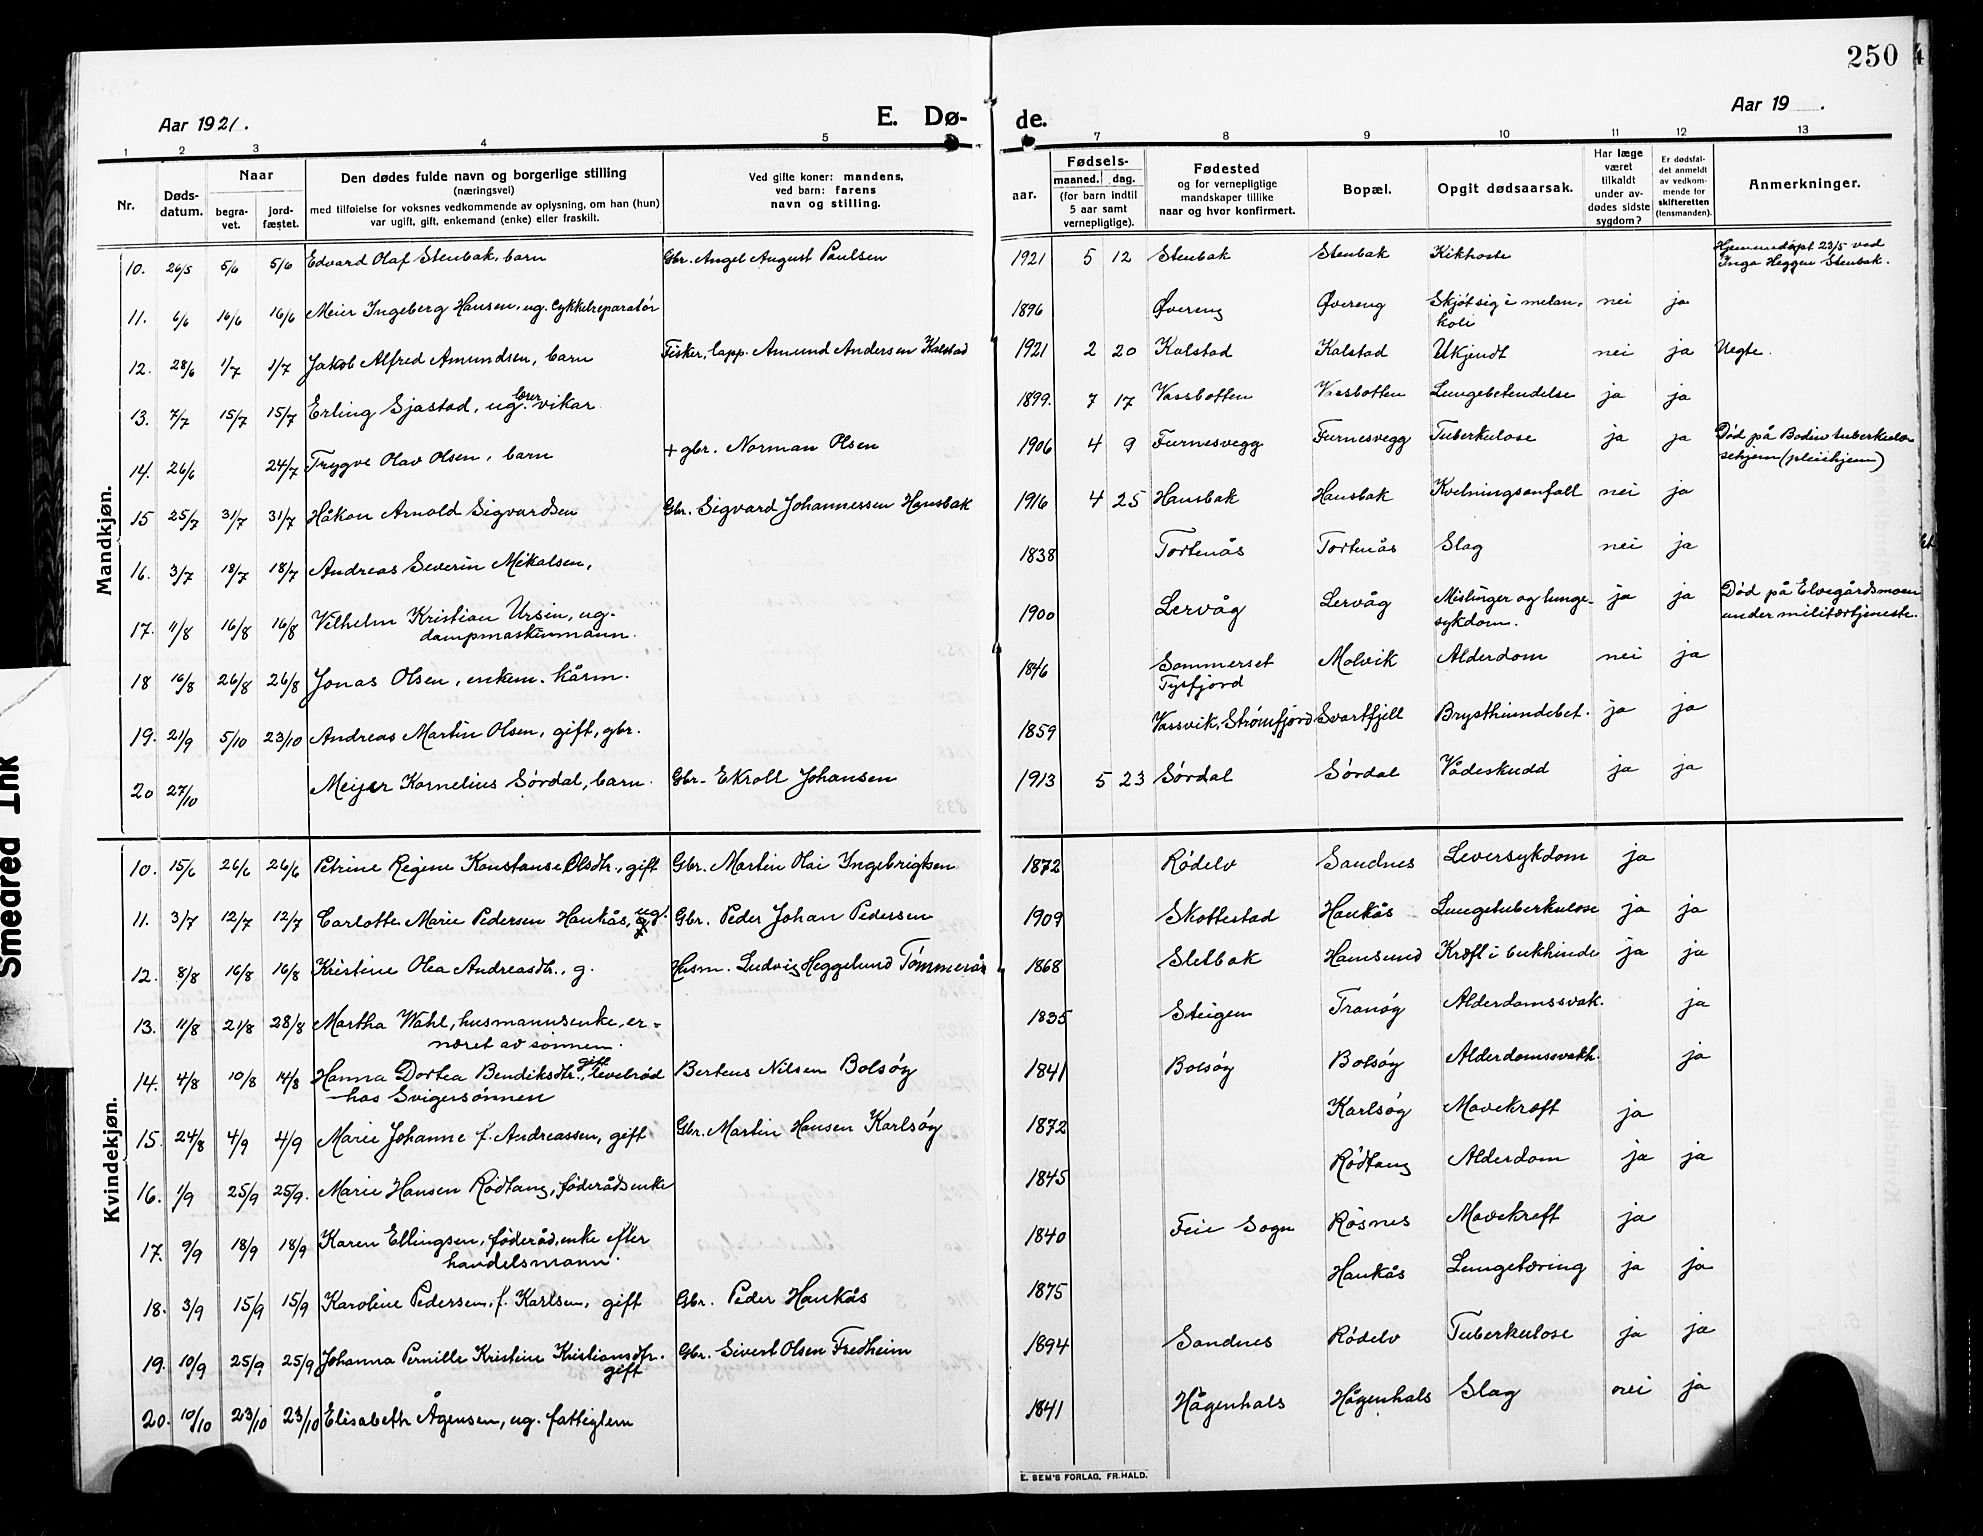 250
Aar 1921.
E. Dø-
de.
Aar 19 .
1 2 3 4 5 7 8 9 10 11 12 13
Nr.
Døds-
datum.
Naar
begra-
vet.
jord-
fæstet.
Den dødes fulde navn og borgerlige stilling
(næringsvei)
med tilføielse for voksnes vedkommende av oplysning, om han (hun)
var ugift, gift, enkemand (enke) eller fraskilt.
Ved gifte koner: mandens,
ved barn: farens
navn og stilling.
Fødsels-
aar.
maaned. dag.
(for barn indtil
5 aar samt
vernepligtige).
Fødested
og for vernepligtige
mandskaper tillike
naar og hvor konfirmert.
Bopæl.
Opgit dødsaarsak.
Har læge
været
tilkaldt
under av-
dødes sidste
sygdom?
Er dødsfal-
det anmeldt
av vedkom-
mende for
skifteretten
(lensmanden).
Anmerkninger.
Mandkjøn.
10. 26/5 5/6 5/6 Edvard Olaf Stenbak, barn Gbr. Angel August Paulsen 1921 5 12 Stenbak Stenbak Kikhoste Hjemmedøpt 23/5 ved
Inga Heggen Stenbak.
11. 6/6 16/6 16/6 Meier Ingeberg Hansen, ug. Cykkelreparatør 1896 Øvereng Øvereng Skjøt sig i melan-
koli nei ja
12. 28/6 1/7 1/7 Jakob Alfred Amundsen, barn Fisker, lapp. Amund Andersen Kalstad 1921 2 20 Kalstad Kalstad Ukjendt nei ja Uegte.
13. 7/7 15/7 15/7 Erling Sjastad, ug. lærervikar 1899. 7 17 Vassbotten Vassbotten Lungebetendelse ja ja
14. 26/6 24/7 Trygve Olav Olsen, barn + gbr. Norman Olsen 1906 4 9 Furnesvegg Furnesvegg Tuberkulose ja ja Død på Bodin tuberkulo-
sehjem (pleiehjem)
15 25/7 31/7 31/7 Håkon Arnold Sigvardsen Gbr. Sigvard Johannessen Hansbak 1916 4 25 Hansbak Hansbak Kvelningsanfall nei ja
16. 3/7 18/7 18/7 Andreas Severin Mikalsen, 1838 Tortenås Tortenås Slag nei ja
17. 11/8 16/8 16/8 Vilhelm Kristian Ursin, ug.
dampmaskinmann. 1900 Lervåg Lervåg Mislinger og lunge-
sykdom. ja ja Død på Elvegårdsmoen
under militærtjeneste.
18 16/8 26/8 26/8 Jonas Olsen, enkem. kårm. 1846 Sommerset
Tysfjord Molvik Alderdom nei ja
19. 21/9 5/10 23/10 Andreas Martin Olsen, gift, gbr. 1859 Vassvik, Strømfjord Svartfjell Brysthindebet. ja ja
20 27/10 Meijer Kornelius Sørdal, barn. Gbr. Ekroll Johansen 1913 5 23 Sørdal Sørdal Vådeskudd ja ja
Kvindekjøn.
10. 15/6 26/6 26/6 Petrine Regine Konstanse Olsdtr., gift Gbr. Martin Olai Ingebrigtsen 1872 Rødelv Sandnes Leversykdom ja
11. 3/7 12/7 12/7 Carlotte Marie Pedersen Haukås, ug. Gbr. Peder Johan Pedersen 1909 Skottestad Haukås Lungetuberkulose ja ja
12. 8/8 16/8 16/8 Kristine Olea Andreasdtr., g. Husm. Ludvig Heggelund Tømmerås 1868 Sletbak Hamsund Kræft i bukhinde ja ja
13. 11/8 21/8 28/8 Martha Wahl, husmannsenke, er-
næret av sønnen. 1835 Steigen Tranøy Alderdomssvak. ja
14. 4/8 10/8 14/8 Hanna Dortea Bendiksdtr., gift, levebrød
hos Svigersønnen Berteus Nilsen Bolsøy 1841 Bolsøy Bolsøy Alderdomssvakh. ja
15. 24/8 4/9 4/9 Marie Johanne f. Andreassen, gift Gbr. Martin Hansen Karlsøy 1872 Karlsøy Mavekræft ja
16. 1/9 25/9 25/9. Marie Hansen Rødtang, føderådsenke 1845 Rødtang Alderdom ja ja
17. 9/9 18/9 18/9 Karen Ellingsen, føderåd, enke efter
handelsmann. 1840 Feie Sogn Røsnes Mavekreft ja
18. 3/9 15/9 15/9 Karoline Pedersen, f. Karlsen, gift Gbr. Peder Haukås 1875 Haukås Lungetæring ja ja
19. 10/9 25/9 25/9 Johanna Pernille Kristine Kristiansdtr.
gift Gbr. Sivert Olsen Fredheim 1894 Sandnes Rødelv Tuberkulose ja ja
20. 10/10 23/10 23/10 Elisabeth Ågensen, ug. fattiglem 1841 Hågenhals Hågenhals Slag nei ja
E. SEM'S FORLAG, FR.HALD.
Smeared Ink